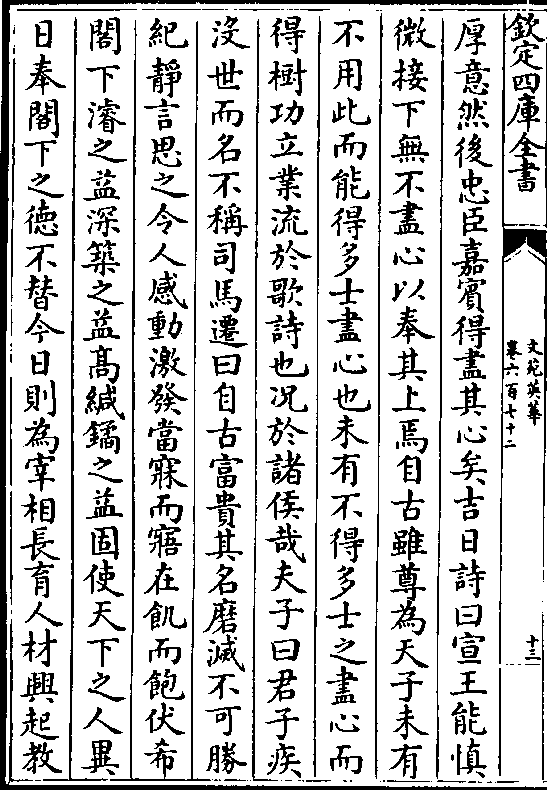 欽定四庫全書
文苑英華
卷六百七十二
十三
厚意然後忠臣嘉賓得盡其心矣吉日詩曰宣王能慎
微接下無不盡心以奉其上焉自古雖尊為天子未有
不用此而能得多士盡心也未有不得多士之盡心而
得樹功立業流於歌詩也况於諸侯哉夫子曰君子疾
沒世而名不稱司馬遷曰自古富貴其名磨滅不可勝
紀靜言思之令人感動激發當寐而寤在飢而飽伏希
閤下濬之益深築之益髙緘鐍之益固使天下之人異
日奉閤下之德不替今日則為宰相長育人材興起教